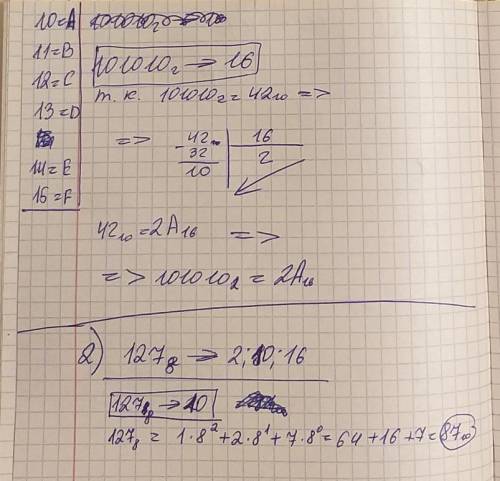 10=A
11=B
12=C
13=D
14=E
16=F
101010₂ → 16
т.к. 101010₂ = 42₁₀ =>
=> 42 | 16
- 32 | 2
10
42₁₀ = 2A₁₆ =>
=> 101010₂ = 2A₁₆
2) 127₈ → 2; 10; 16
127₈ → 10
127₈ = 1·8² + 2·8¹ + 7·8⁰ = 64 + 16 + 7 = 87₁₀